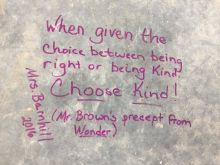 When given the
choice between being
right or being kind
Choose Kind!
(Mr. Brown's precept from
Wonder)
Mrs. Barnhill
2016